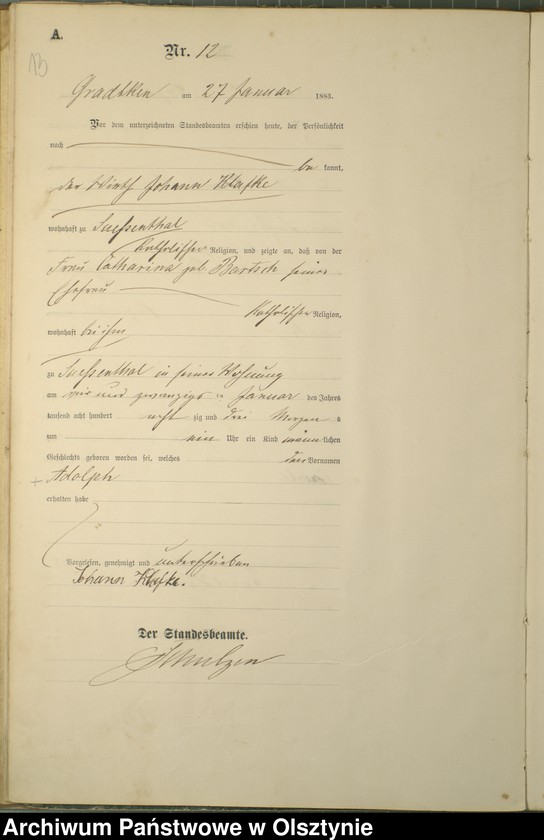 A.
13
Nr. 12
Gradtken am 27 Januar 1883.
Vor dem unterzeichneten Standesbeamten erschien heute, der Persönlichkeit
nach
be kannt,
der Wirth Johann Klafke
wohnhaft zu Suessenthal
katholischer Religion, und zeigte an, daß von der
Frau Catharina geb. Bartsch seiner
Ehefrau
katholischer Religion,
wohnhaft bei ihm
zu Suessenthal in seiner Wohnung
am vier und zwanzigs Januar des Jahres
tausend acht hundert acht zig und drei Morgens
um ein Uhr ein Kind männlichen
Geschlechts geboren worden sei, welches den Vornamen
Adolph
erhalten habe
Vorgelesen, genehmigt und unterschrieben
Johann Klafke.
Der Standesbeamte.
Schulzen
Archiwum Państwowe w Olsztynie